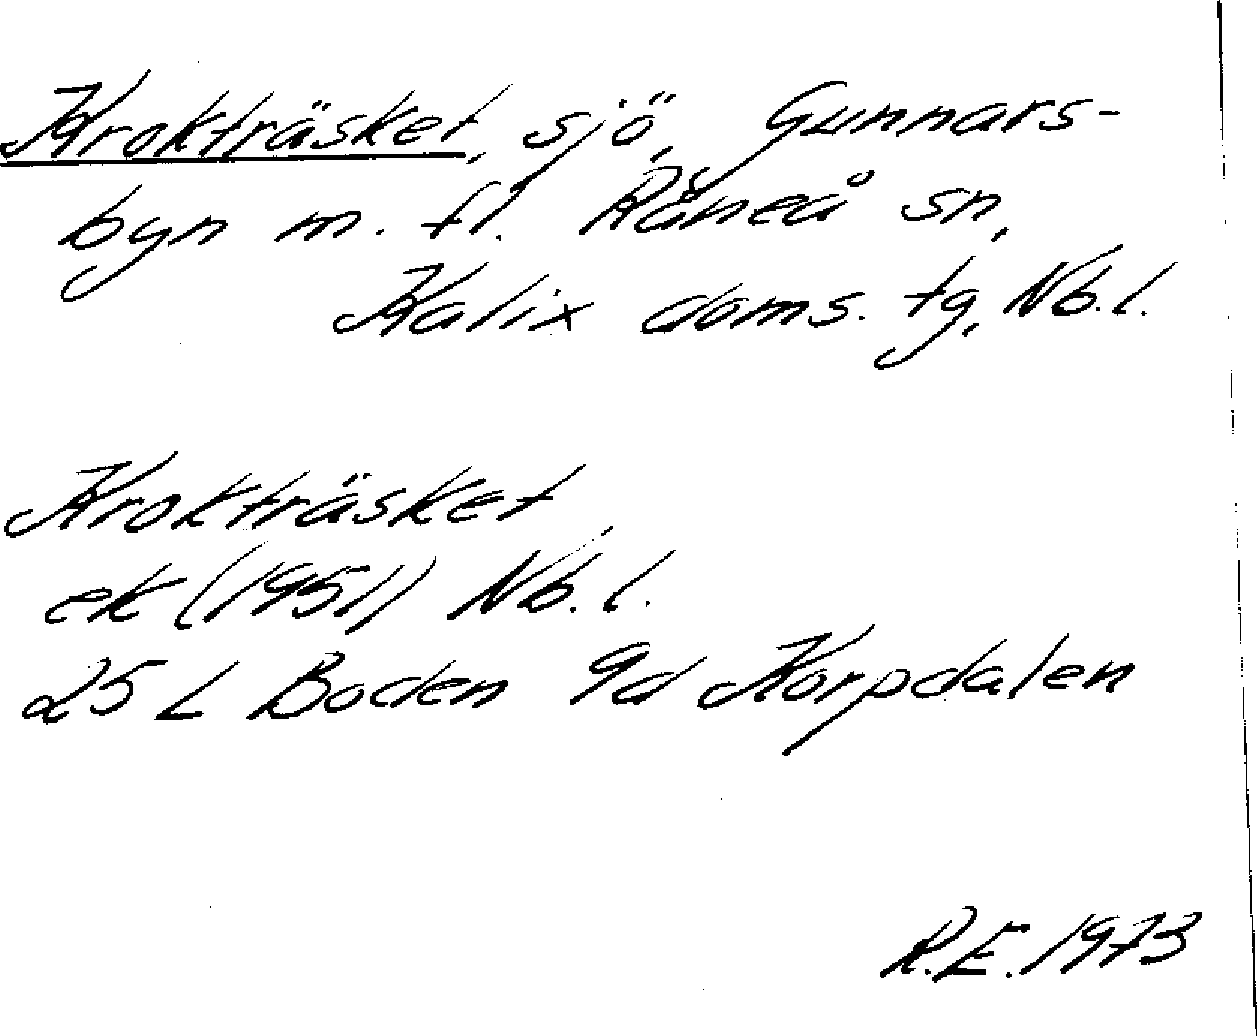 Krokträsket, sjö, Gunnars-
byn m. fl. Råneå sn,
Kalix doms. tg, Nb.l.
Krokträsket
ek (1951) Nb. l.
25 L Boden 9d Korpdalen
R.E. 1973